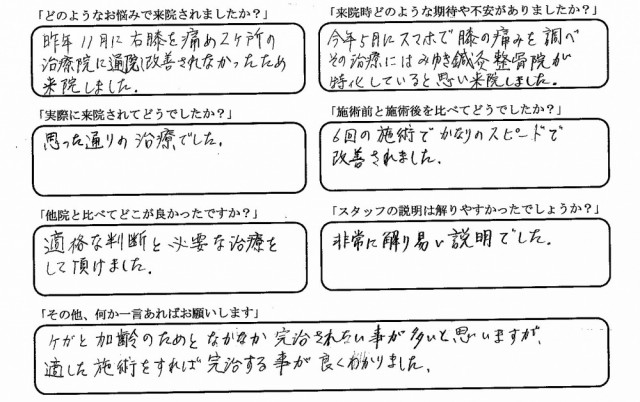 「どのようなお悩みで来院されましたか？」
昨年11月に右膝を痛め2ケ所の
治療院に通院し改善されなかったため
来院しました。
「来院時どのような期待や不安がありましたか？」
今年5月にスマホで膝の痛みを調べ
その治療にはみゆき鍼灸整骨院が
特化していると思い来院しました。
「実際に来院されてどうでしたか？」
思った通りの治療でした。
「施術前と施術後を比べてどうでしたか？」
6回の施術でかなりのスピードで
改善されました。
「他院と比べてどこが良かったですか？」
適格な判断と必要な治療を
して頂けました。
「スタッフの説明は解りやすかったでしょうか？」
非常に解り易い説明でした。
「その他、何か一言あればお願いします」
ケガと加齢のためと なかなか完治されない事が多いと思いますが、
適した施術をすれば完治する事が良くわかりました。